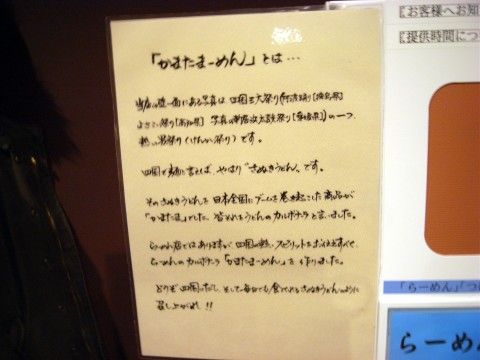 「かまたまーめん」とは…
当店の壁一面にある写真は 四国三大祭り(阿波踊り[徳島県]
よさこい祭り[高知県] 写真の新居浜太鼓祭り[愛媛県])の一つ
熱い男祭り(けんか祭り)です。
四国で麺と言えば、やはり"さぬきうどん"です。
そのさぬきうどんを日本全国にブームを巻き起こした商品が
「かまたま」でした。皆それをうどんのカルボナーラと言いました。
らーめん店ではありますが 四国の熱いスピリットを
らーめんのカルボナーラ「かまたまーめん」を作りました。
どうぞ四国のだし、そして毎日でも食べれるさぬきうどんのように
召し上がれ!!
【お客様へお知
【提供時間につ
「らーめん」つ
らーめん